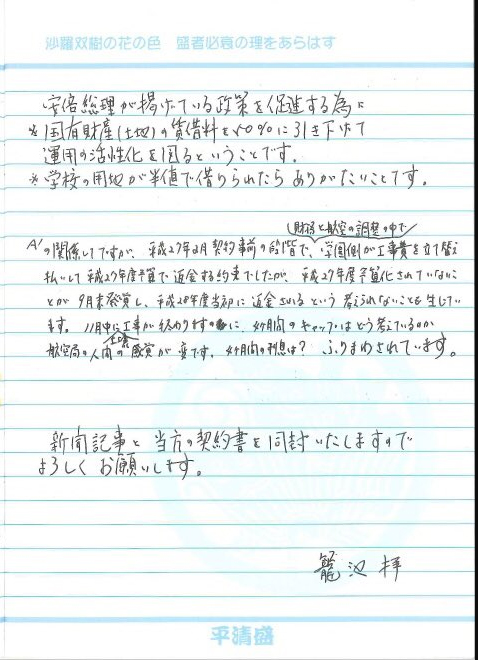 沙羅双樹の花の色　盛者必衰の理をあらはす
安倍総理が掲げている政策を促進する為に
※国有財産(土地)の賃借料を50%に引き下げて
運用の活性化を図るということです。
※学校の用地が半値で借りられたらありがたいことです。
財務と航空の調整の中で
A'の関係してですが、平成27年2月契約事前の段階で、学園側が工事費を立て替え
払いして平成27年度予算で返金する約束でしたが、平成27年度予算化されていないこ
とが9月末発覚し、平成28年度当初に返金されるという考えられないことも生じてい
ます。11月中に工事が終わりますのに、4ケ月間のギャップはどう考えているのか
航空局の人の感覚が変です。4ケ月間の利息は？ふりまわされています。
新聞記事と当方の契約書を同封いたしますので
よろしくお願いします。
籠池 拝
平清盛